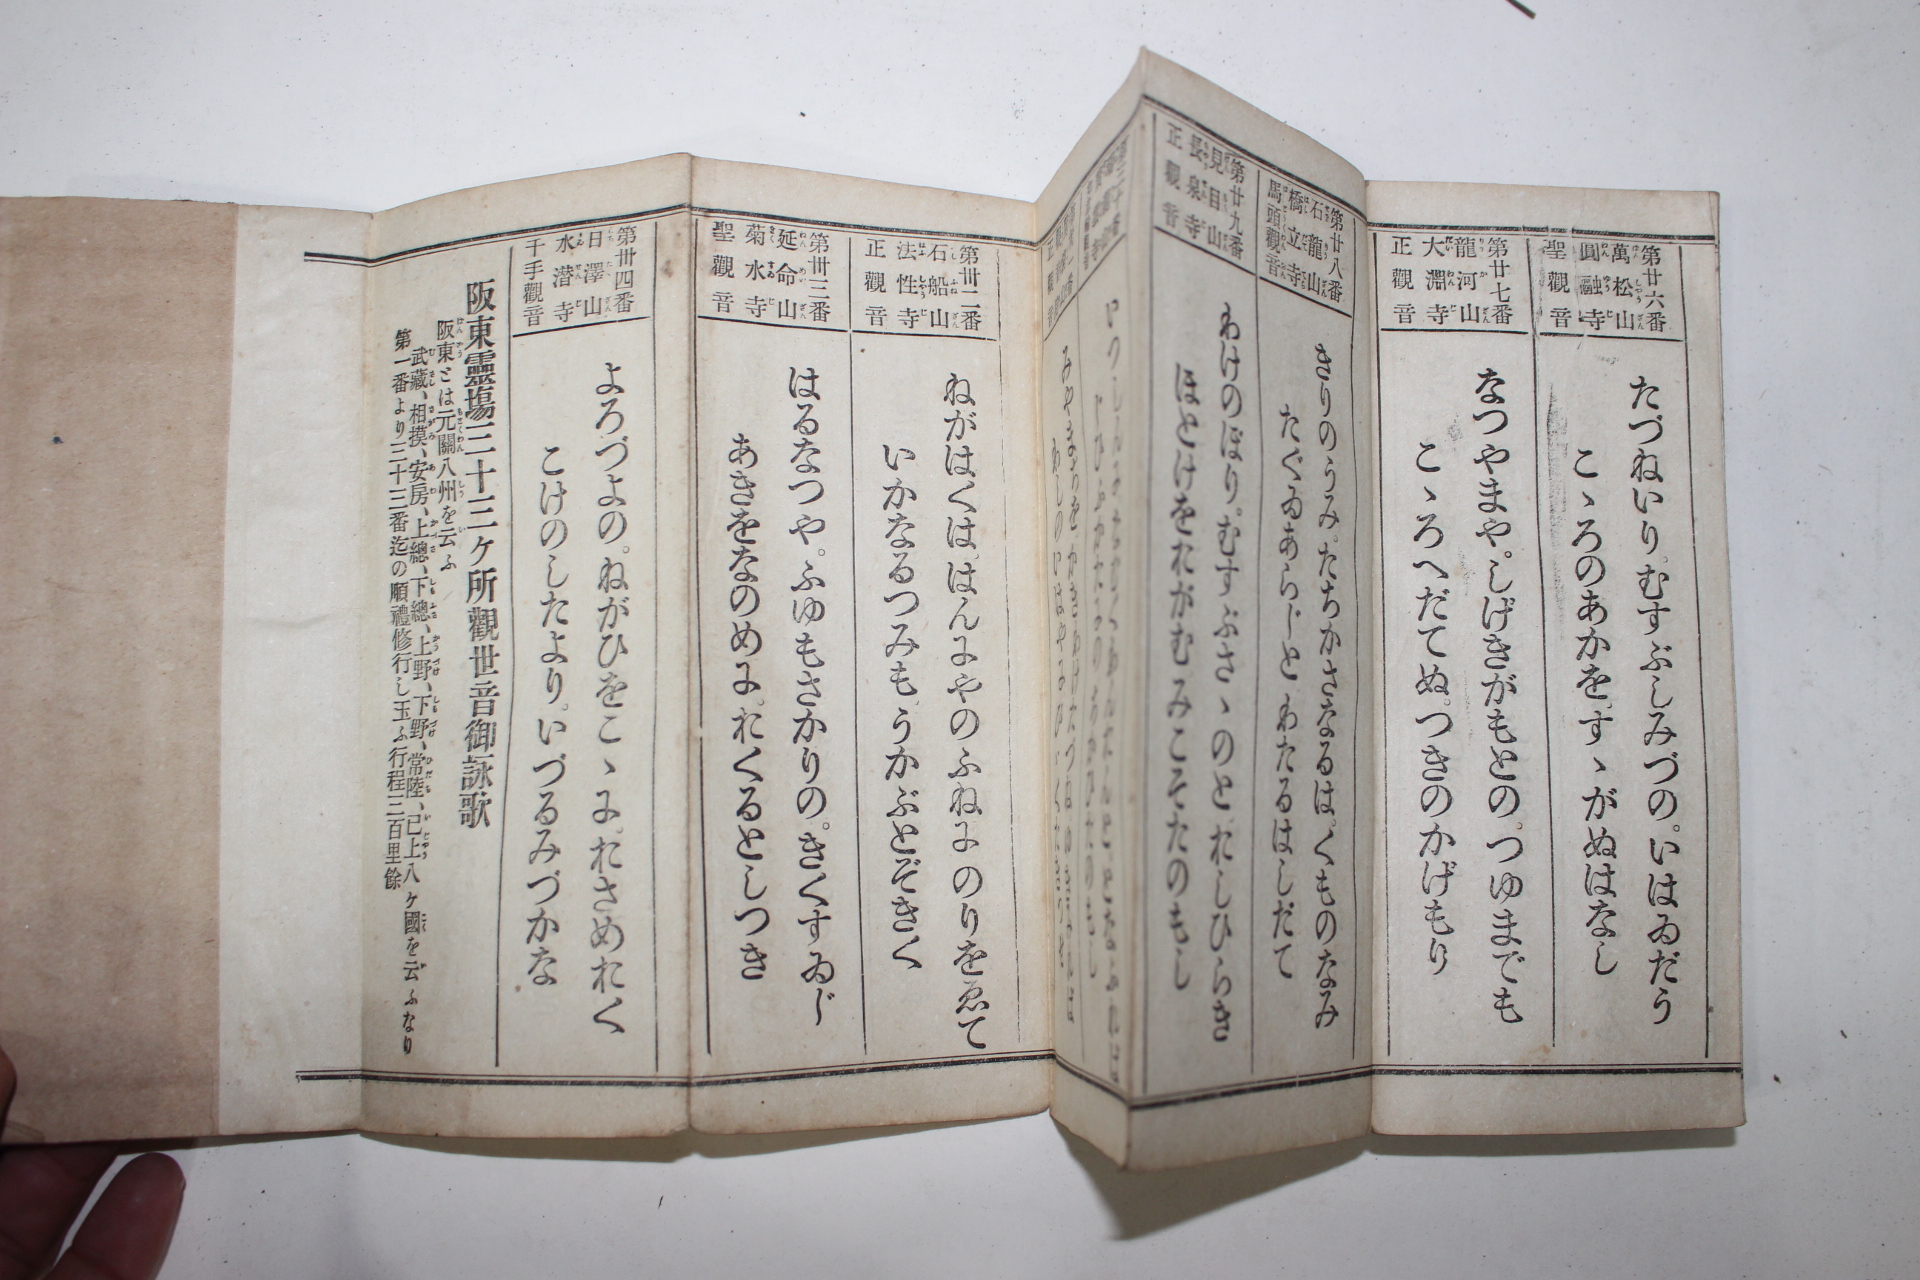 第廿六番
萬松山
圓融寺
聖觀音
たづねいり。むすぶしみづの。いはゐだう
こゝろのあかを。すゝがぬはなし
第廿七番
龍河山
大淵寺
正觀音
なつやまや。しげきがもとの。つゆまでも
こゝろへだてぬ。つきのかげもり
第廿八番
石龍山
橋立寺
馬頭觀音
きりのうみ。たちかさなるは。くものなみ
たぐゐあらじと。わたるはしだて
第廿九番
見目山
長泉寺
正觀音
わけのぼり。むすぶさゝのと。れしひらき
ほとけをれがむ。みこそたのもし
第卅二番
石船山
法性寺
正觀音
ねがはくは。はんにやのふねに。のりをゑて
いかなるつみも。うかぶとぞきく
第卅三番
延命山
菊水寺
聖觀音
はるなつや。ふゆもさかりの。きくすゐじ
あきをなのめに。れくるとしつき
第卅四番
日澤山
水潜寺
千手觀音
よろづよの。ねがひをこゝに。れさめれく
こけのしたより。いづるみづかな
阪東靈塲三十三ヶ所觀世音御詠歌
阪東とは元關八州を云ふ
武藏、相摸、安房、上總、下總、上野、下野、常陸、已上八ヶ國を云ふなり
第一番より三十三番迄の順禮修行し玉ふ行程三百里餘